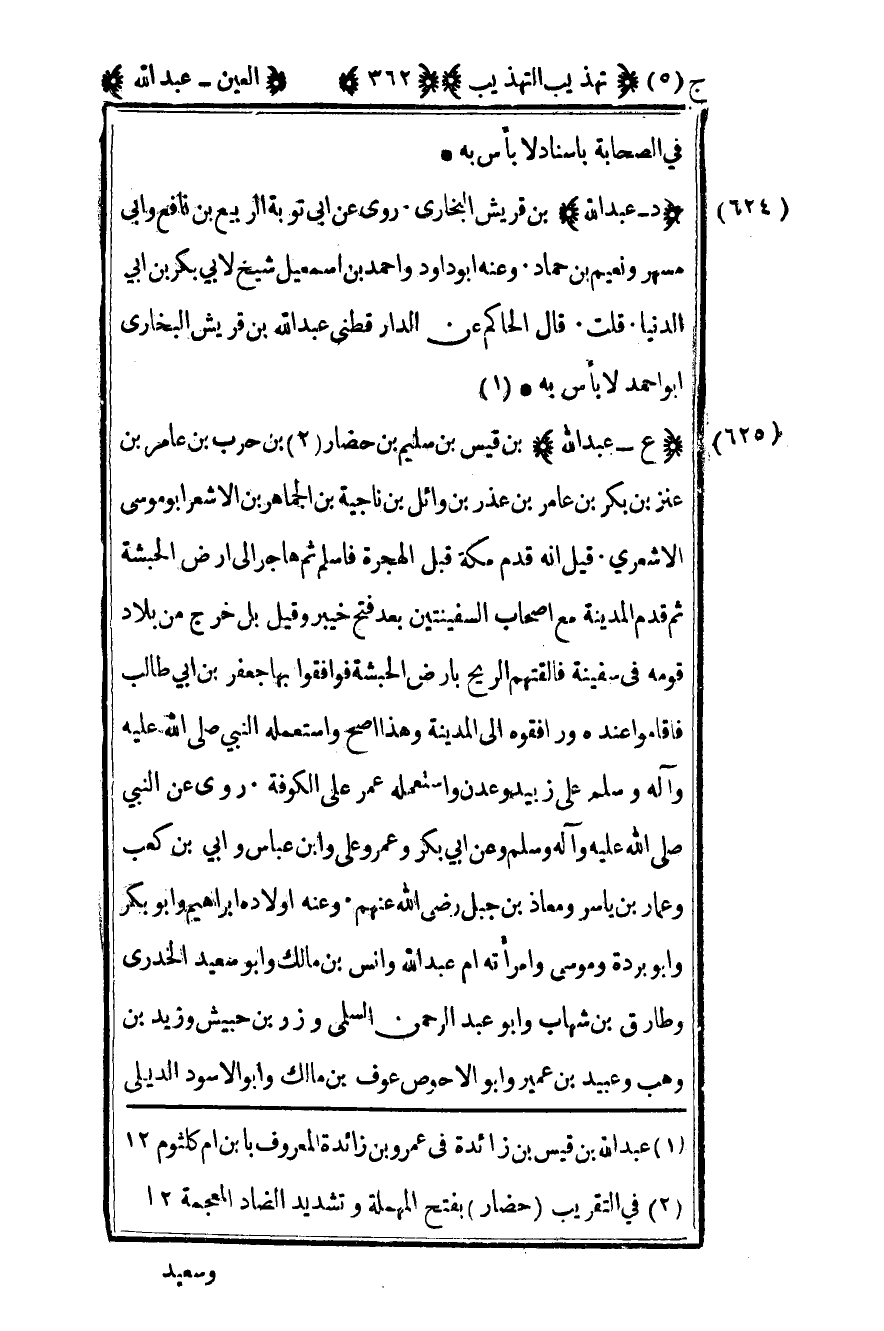 ج (٥) ﴿ تهذيب التهذيب ﴾ ﴿ ٣٦٢ ﴾ ﴿ العين ـ عبدالله ﴾
في الصحابة باسناد لا بأس به •
(٦٢٤) ﴿ د ـ عبدالله ﴾ بن قريش البخارى · روى عن ابى توبة الربيع بن نافع وابى
مسهر ونعيم بن حماد · وعنه ابوداود واحمد بن اسمعيل شيخ لابي بكر بن ابي
الدنيا · قلت · قال الحاكم عن الدار قطنى عبدالله بن قريش البخارى
ابواحمد لا بأس به • (١)
(٦٢٥) ﴿ ع ـ عبدالله ﴾ بن قيس بن سليم بن حضار (٢) بن حرب بن عامر بن
عنز بن بكر بن عامر بن عذر بن وائل بن ناجية بن الجماهر بن الاشعر ابو موسى
الاشعري · قيل انه قدم مكة قبل الهجرة فاسلم ثم هاجر الى ارض الحبشة
ثم قدم المدينة مع اصحاب السفينتين بعد فتح خيبر وقيل بل خرج من بلاد
قومه فى سفينة فالقتهم الريح بارض الحبشة فوافقوا بها جعفر بن ابي طالب
فاقاموا عنده ورافقوه الى المدينة وهذا اصح واستعمله النبي صلى الله عليه
وآله وسلم على زبيد وعدن واستعمله عمر على الكوفة · روى عن النبي
صلى الله عليه وآله وسلم وعن ابي بكر وعمر وعلى وابن عباس وابي بن كعب
وعمار بن ياسر ومعاذ بن جبل رضى الله عنهم · وعنه اولاده ابراهيم وابو بكر
وابو بردة وموسى وامرأته ام عبدالله وانس بن مالك وابو سعيد الخدرى
وطارق بن شهاب وابو عبد الرحمن السلمى وزر بن حبيش وزيد بن
وهب وعبيد بن عمير وابو الاحوص عوف بن مالك وابو الاسود الديلى
(١) عبدالله بن قيس بن زائدة فى عمرو بن زائدة المعروف بابن ام كلثوم ١٢
(٢) في التقريب (حضار) بفتح المهملة وتشديد الضاد المعجمة ١٢
وسعيد